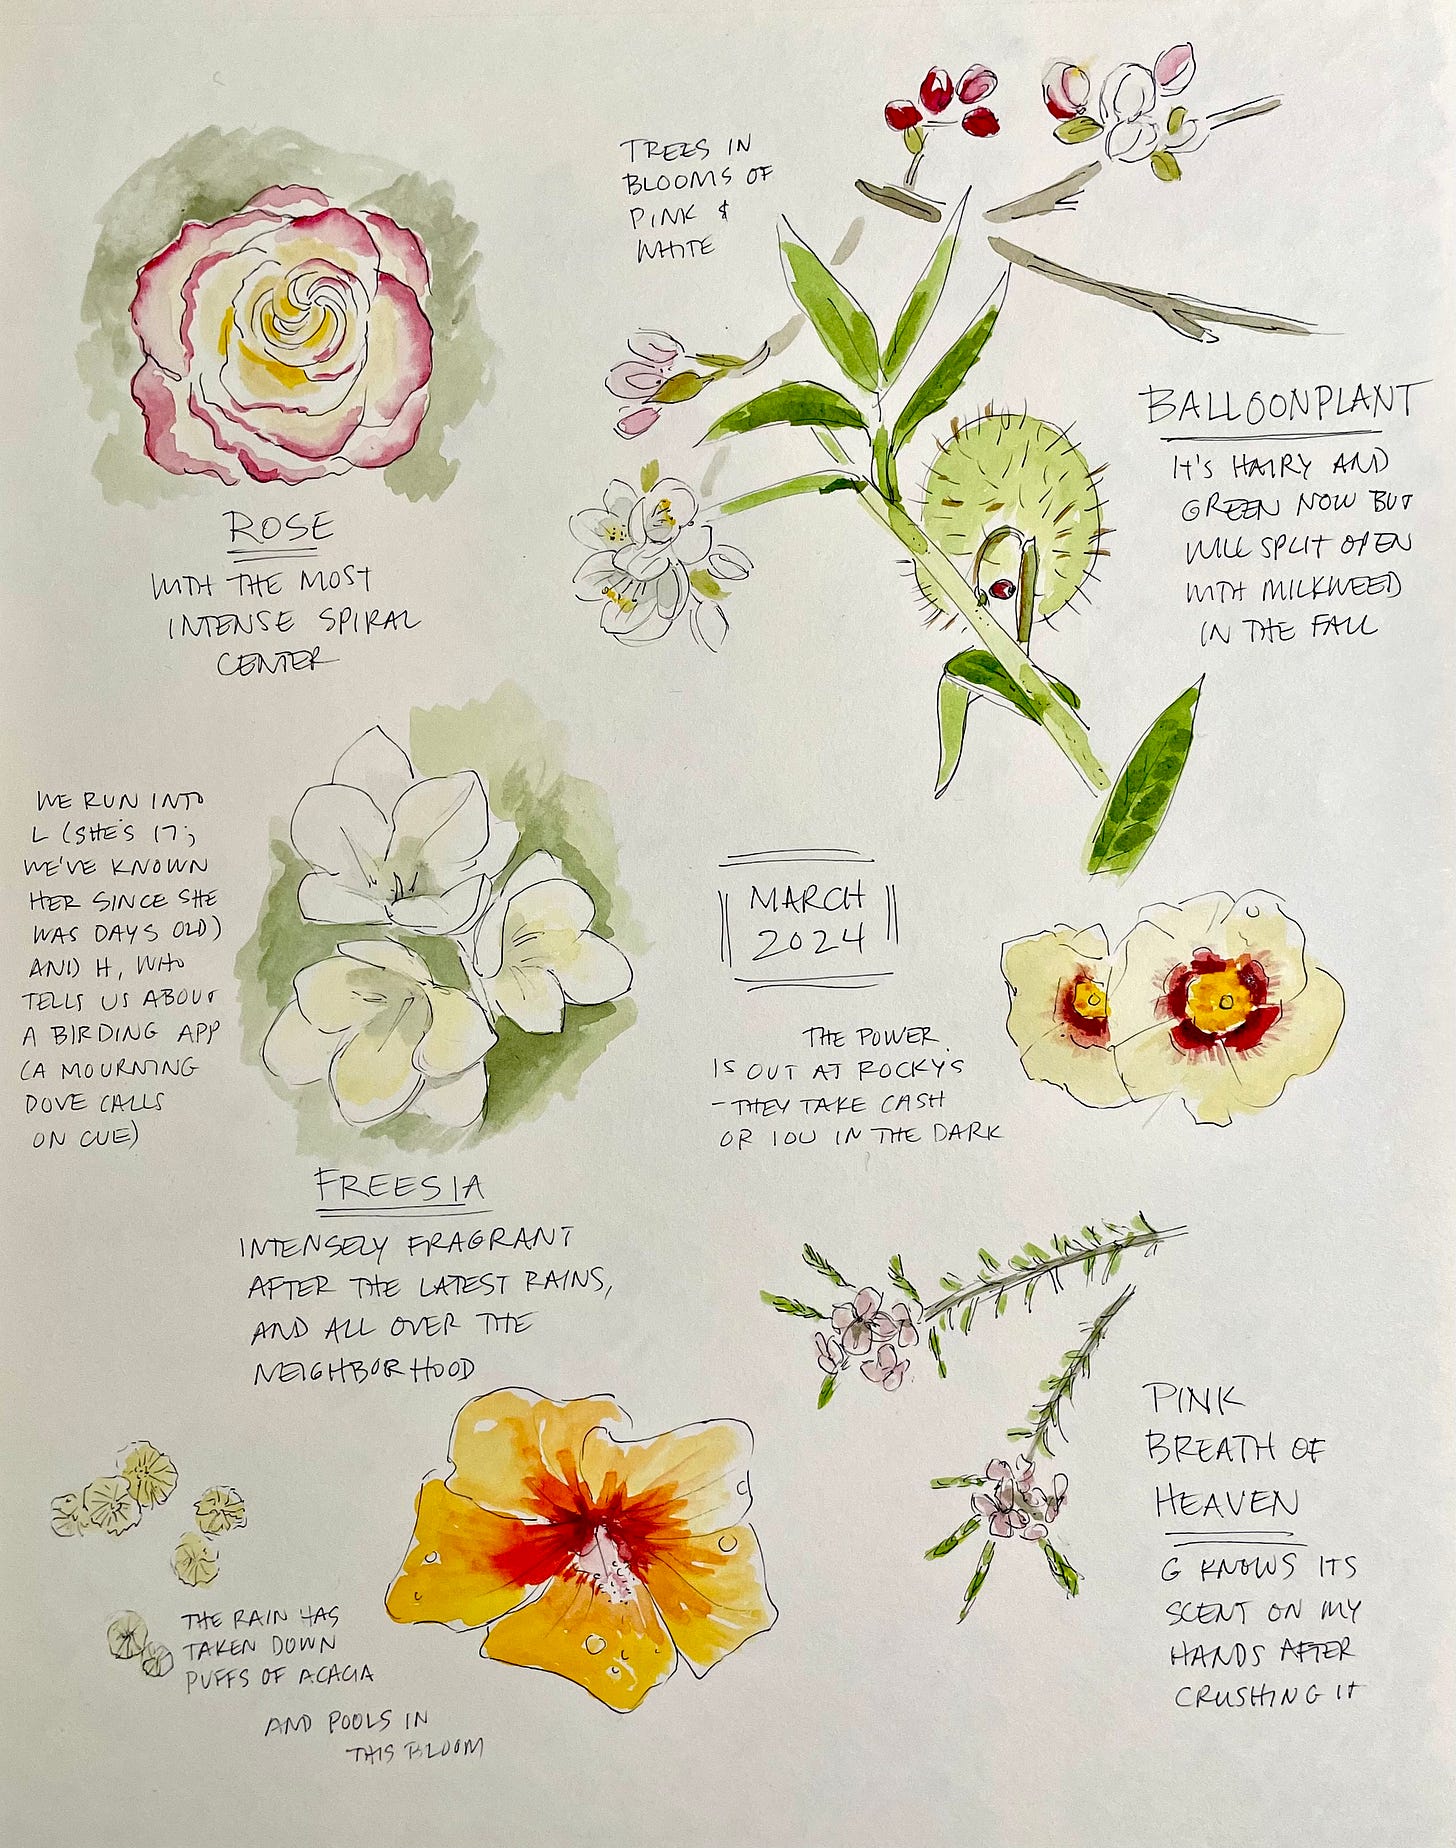 TREES IN
BLOOMS OF
PINK &
WHITE
ROSE
WITH THE MOST
INTENSE SPIRAL
CENTER
BALLOONPLANT
IT'S HAIRY AND
GREEN NOW BUT
WILL SPLIT OPEN
WITH MILKWEED
IN THE FALL
WE RUN INTO
L (SHE'S 17;
WE'VE KNOWN
HER SINCE SHE
WAS DAYS OLD)
AND H, WHO
TELLS US ABOUT
A BIRDING APP
(A MOURNING
DOVE CALLS
ON CUE)
MARCH
2024
THE POWER
IS OUT AT ROCKY'S
- THEY TAKE CASH
OR IOU IN THE DARK
FREESIA
INTENSELY FRAGRANT
AFTER THE LATEST RAINS,
AND ALL OVER THE
NEIGHBORHOOD
PINK
BREATH OF
HEAVEN
G KNOWS ITS
SCENT ON MY
HANDS AFTER
CRUSHING IT
THE RAIN HAS
TAKEN DOWN
PUFFS OF ACACIA
AND POOLS IN
THIS BLOOM